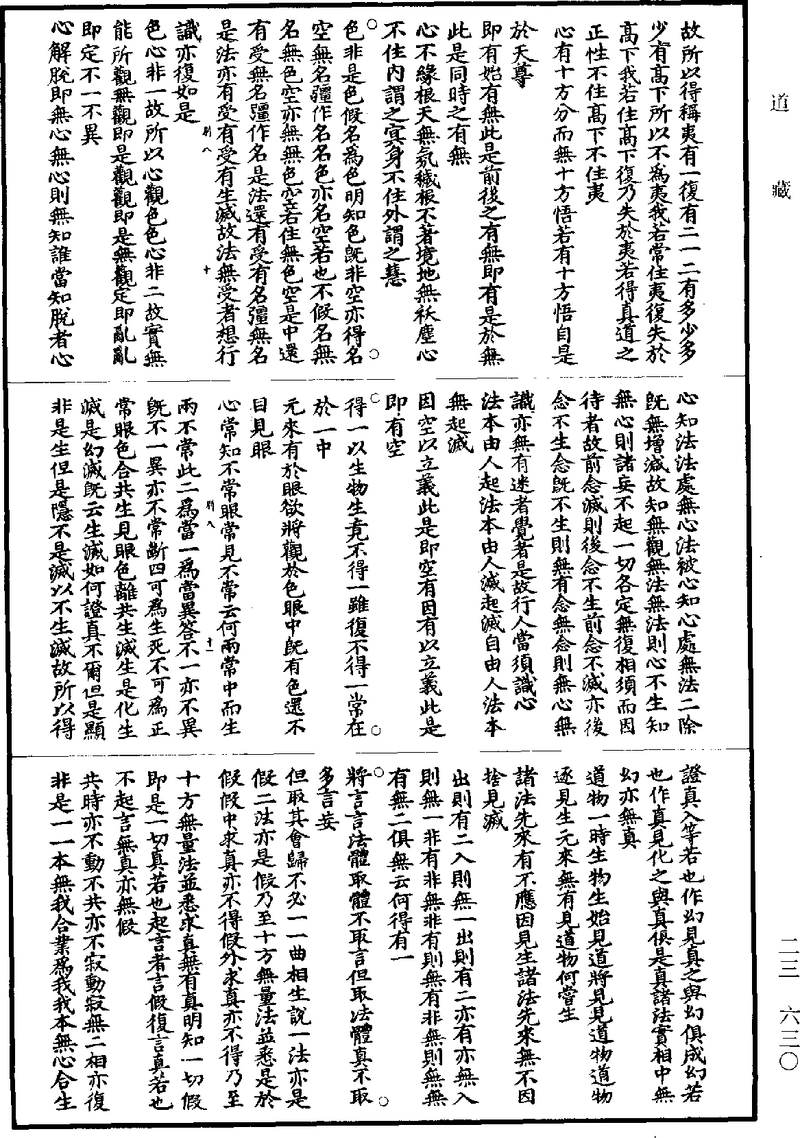 道藏
二三 六三〇
故所以得稱夷有一復有二一二有多少多
少有高下所以不為夷我若常住夷復失於
高下我若住高下復乃失於夷若得真道之
正性不住高下不住夷
心有十方分而無十方悟若有十方悟自是
於天尊
即有始有無此是前後之有無即有是於無
此是同時之有無
心不緣根天無氛穢根不著境地無祅塵心
不住內謂之寂身不住外謂之慧
色非是色假名為色明知色既非空亦得名
空無名彊作名名色亦名空若也不假名無
名無色空亦無無色空若住無色空是中還
有受無名彊作名是法還有受有名彊無名
是法亦有受有受有生滅故法無受者想行
別八 十
識亦復如是
色心非一故所以心觀色色心非二故實無
能所觀無觀即是觀觀即是無觀定即亂亂
即定不一不異
心解脫即無心無心則無知誰當知脫者心
心知法法處無心法被心知心處無法二除
既無增減故知無觀無法無法則心不生知
無心則諸妄不起一切各定無復相須而因
待者故前念滅則後念不生前念不滅亦後
念不生念既不生則無有念無念則無心無
識亦無有迷者覺者是故行人當須識心
法本由人起法本由人滅起滅自由人法本
無起滅
因空以立義此是即空有因有以立義此是
即有空
得一以生物生竟不得一雖復不得一常在
於一中
元來有於眼欲將觀於色眼中既有色還不
目見眼
心常知不常眼常見不常云何兩常中而生
別八 十一
兩不常此二為當一為當異答不一亦不異
既不一異亦不常斷四可為生死不可為正
常眼色合共生見眼色離共生滅生是化生
滅是幻滅既云生滅如何證真不爾但是顯
非是生但是隱不是滅以不生滅故所以得
證真入等若也作幻見真之與幻俱成幻若
也作真見化之與真俱是真諸法實相中無
幻亦無真
道物一時生物生始見道將見見道物道物
逐見生元來無有見道物何當生
諸法先來有不應因見生諸法先來無不因
捨見滅
出則有二入則無一出則有二亦有亦無入
則無一非有非無非有則無有非無則無無
有無二俱無云何得有一
將言言法體取體不取言但取法體真不取
多言妄
但取其會歸不必一一曲相生說一法亦是
假二法亦是假乃至十方無量法並悉是於
假假中求真亦不得假外求真亦不得乃至
十方無量法並悉求真無有真明知一切假
即是一切真若也起言者言假復言真若也
不起言無真亦無假
共時亦不動不共亦不寂動寂無二相亦復
非是一一本無我合業為我我本無心合生